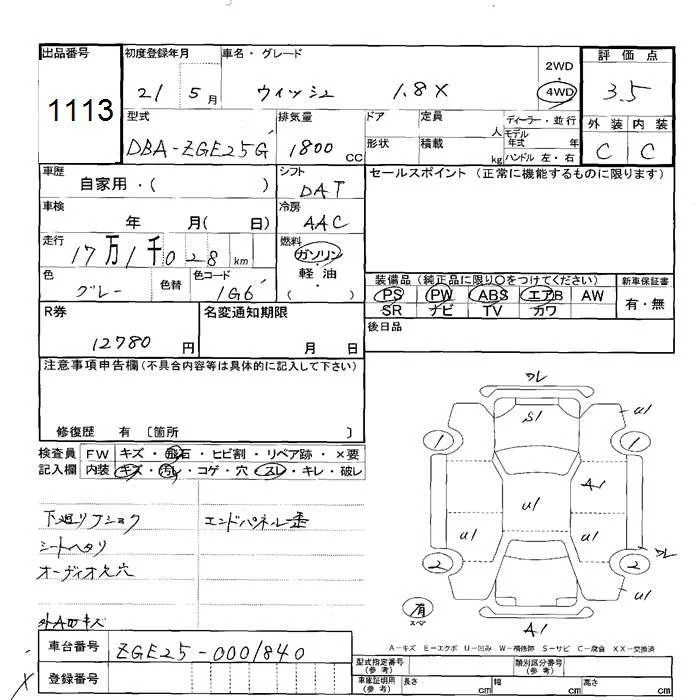 出品番号 初度登録年月 車名・グレード 2WD 評価点
1113 21 5月 ウィッシュ 1.8X 4WD 3.5
型式 排気量 ドア 定員 人 ディーラー・並行 外装 内装
DBA-ZGE25G 1800 CC 形状 積載 kg モデル年式 年 C C
ハンドル 左・右
車歴 自家用・( ) シフト DAT セールスポイント (正常に機能するものに限ります)
車検 年 月( 日) 冷房 AAC
走行 17万1千028km 燃料 ガソリン
軽油
( )
色 グレー 色替 色コード 1G6
装備品 (純正品に限り○をつけてください) 新車保証書
PS PW ABS エアB AW 有・無
SR ナビ TV カワ
R券 12780円 名変通知期限 月 日 後日品
注意事項申告欄(不具合内容等は具体的に記入して下さい)
修復歴 有 〔箇所 〕
検査員 FW キズ・飛石・ヒビ割・リペア跡・×要
記入欄 内装 キズ・汚れ・コゲ・穴・スレ・キレ・破レ
下廻りフショク エンドパネル歪
シートヘタリ
オーディオ欠穴
ワレ
S1
U1
1 1
A1
U1
U1 U1
ワレ
2 2
U1
有
スペア
A1
A-キズ E-エクボ U-凹み W-補修跡 S-サビ C-腐食 XX-交換済
車台番号 ZGE25-0001840
型式指定番号(参考) 類別区分番号(参考)
登録番号
車庫証明用(参考) 長さ cm 幅 cm 高さ cm